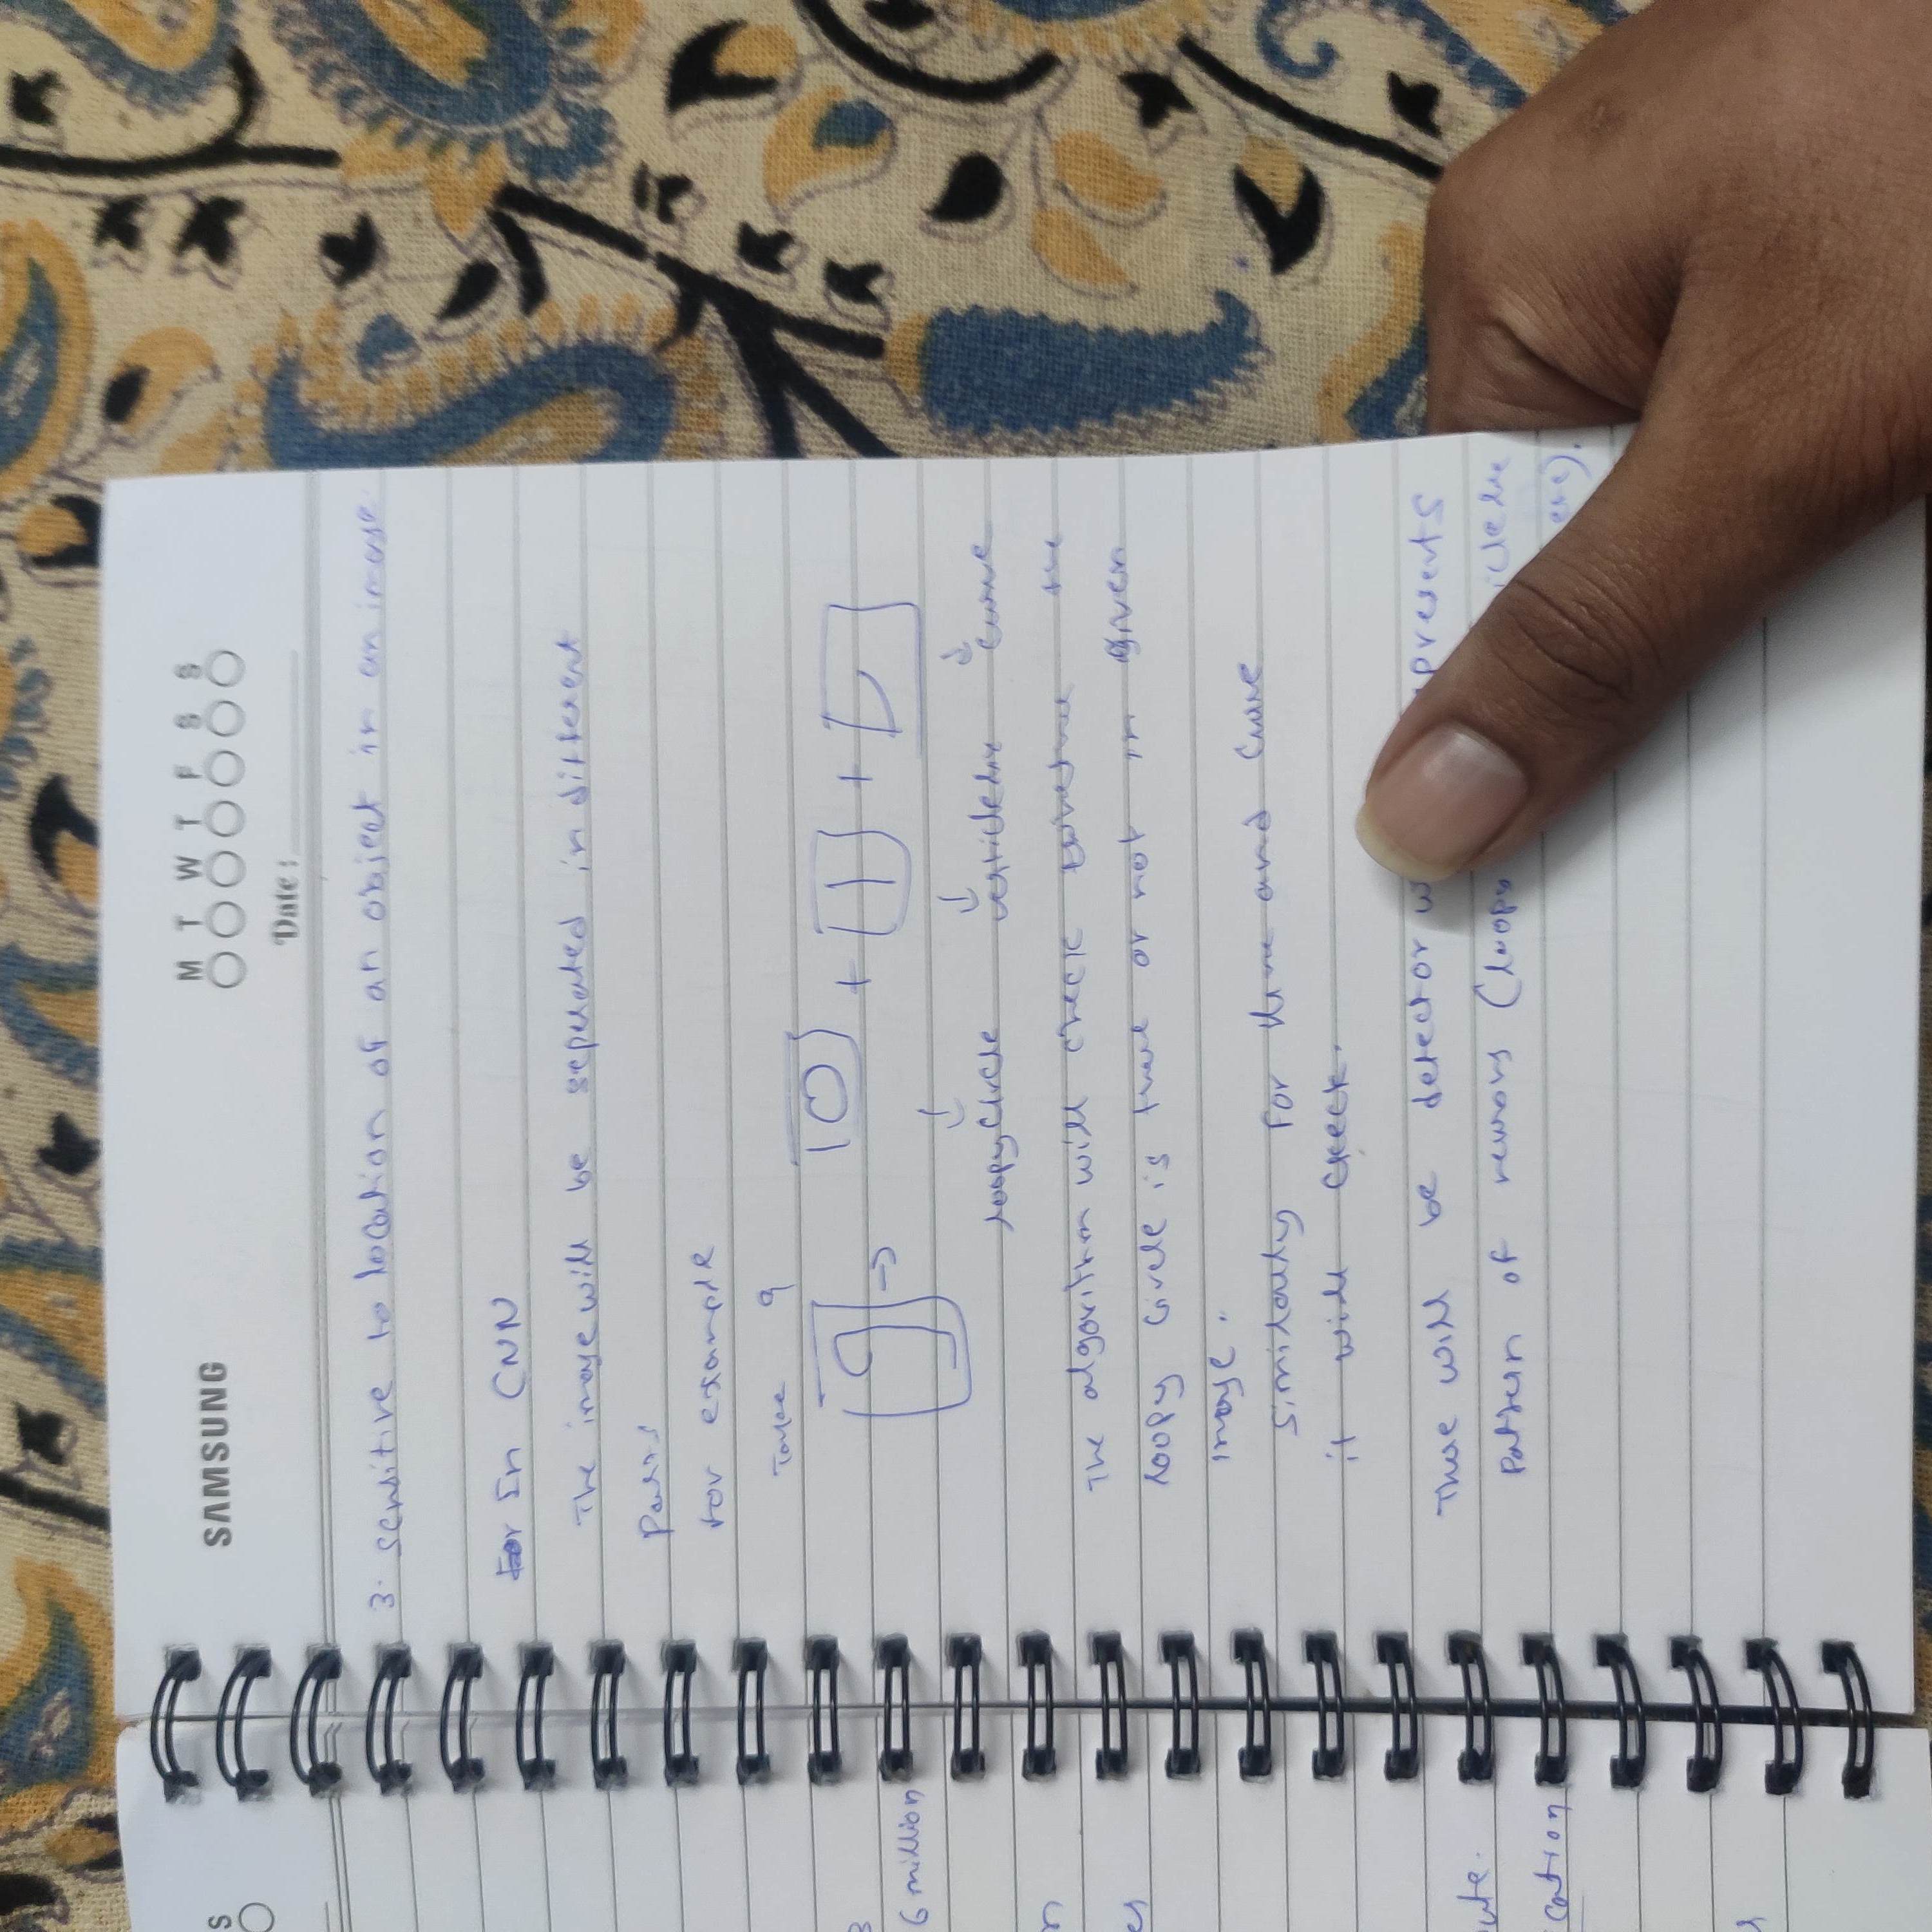 S
SAMSUNG
M T W T F S S
Date :
3. sensitive to location of an object in an image
For In CNN
The image will be seperated in different
Parts
for example
Take 9
9 → O + | +
loopy circle verticle line curve
6 million
The algorithm will check whether the
loopy circle is there or not in given
image.
similarly for line and curve
it will check.
There will be detector presents
Pattern of neurons (loopy
cation
etc).